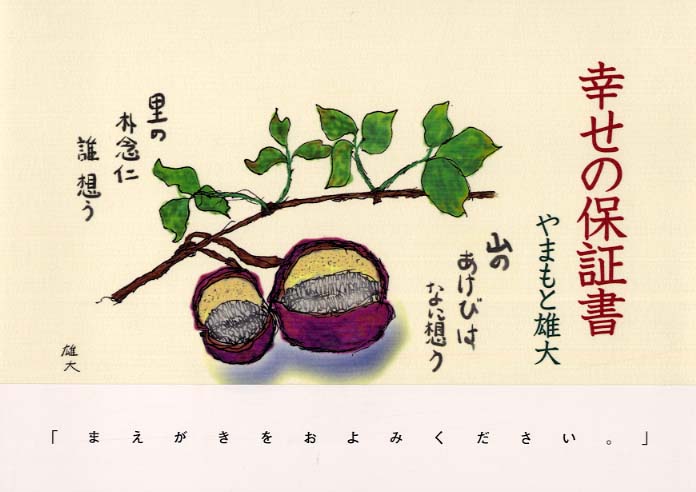 幸せの保証書
やまもと雄大
山の
あけびは
なに想う
里の
朴念仁
誰想う
雄大
「まえがきをおよみください。」